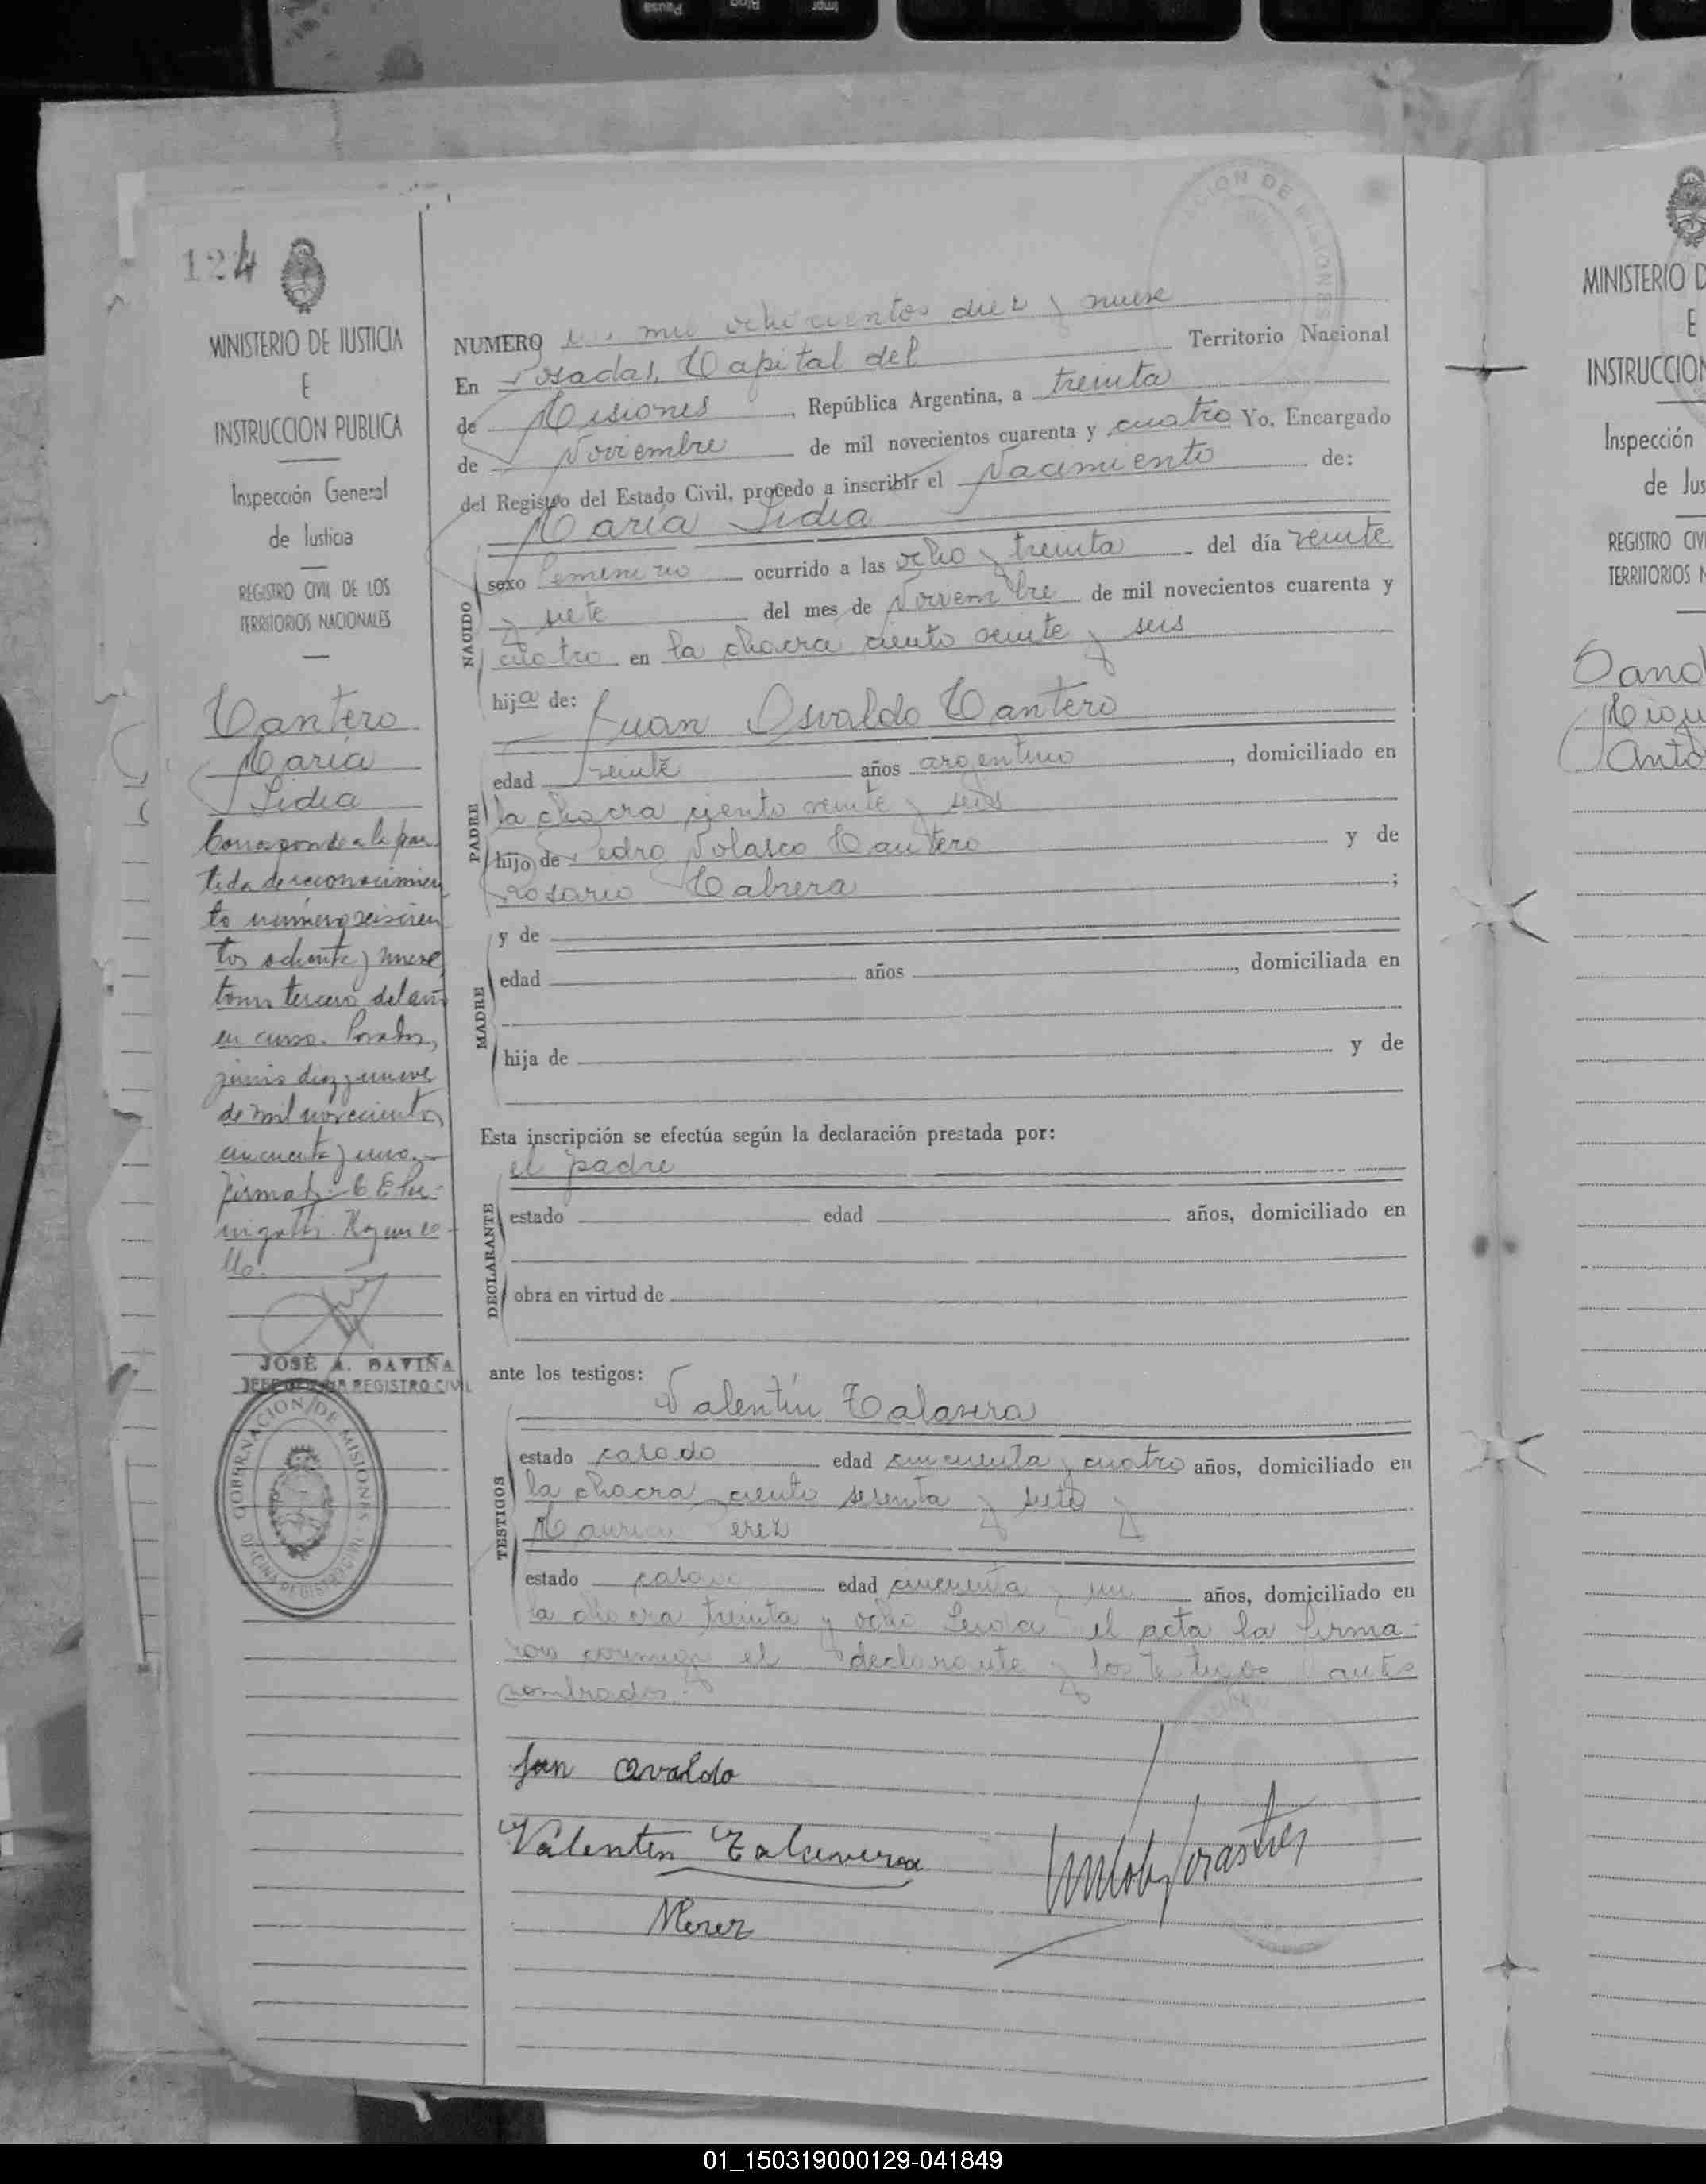 Impr
Bloq
Pausa
124
MINISTERIO DE JUSTICIA
E
INSTRUCCION PUBLICA
Inspección General
de Justicia
REGISTRO CIVIL DE LOS
TERRITORIOS NACIONALES
Cantero
María
Lidia
Corresponde a la par
tida de reconocimien
to número seiscien
tos ochenta y nueve
tomo tercero del año
en curso. Posadas,
junio diez y nueve
de mil novecientos
cincuenta y uno.-
JOSÉ A. DAVIÑA
REGISTRO CIVIL
GOBERNACION DE MISIONES
NUMERO mil ochocientos diez y nueve
En Posadas, Capital del Territorio Nacional
de Misiones, República Argentina, a treinta
de Noviembre de mil novecientos cuarenta y cuatro Yo, Encargado
del Registro del Estado Civil, procedo a inscribir el Nacimiento de:
María Lidia
NACIDO
sexo femenino ocurrido a las ocho y treinta del día veinte
y siete del mes de Noviembre de mil novecientos cuarenta y
cuatro en la chacra ciento veinte y seis
hija de: Juan Osvaldo Cantero
PADRE
edad veinte años argentino, domiciliado en
la chacra ciento veinte y seis
hijo de Pedro Nolasco Cantero y de
Rosario Cabrera;
y de
MADRE
edad años, domiciliada en
hija de y de
Esta inscripción se efectúa según la declaración prestada por:
el padre
DECLARANTE
estado edad años, domiciliado en
obra en virtud de
ante los testigos:
Valentín Talavera
TESTIGOS
estado casado edad cincuenta y cuatro años, domiciliado en
la chacra ciento sesenta y siete y
Mauricio Perez
estado casado edad cincuenta y un años, domiciliado en
la chacra treinta y ocho Leida el acta la firma-
ron conmigo el declarante y los testigos antes
nombrados.-
Juan Osvaldo
Valentin Talavera
MPerez
MINISTERIO D
E
INSTRUCCION
Inspección
de Jus
REGISTRO CIVI
TERRITORIOS N
Sand
Migu
Anto
01_150319000129-041849